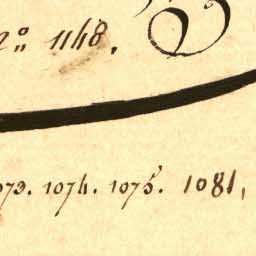 2º. 1148.
073. 1074. 1075. 1081,